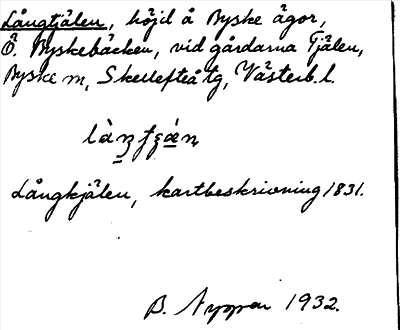 Långtjälen, höjd å Byske ägor,
Ö. Byskebäcken, vid gårdarna Tjälen,
Byske sn, Skellefteå tg, Västerb. l.
Långkjälen, kartbeskrivning 1831.
B. 1932.